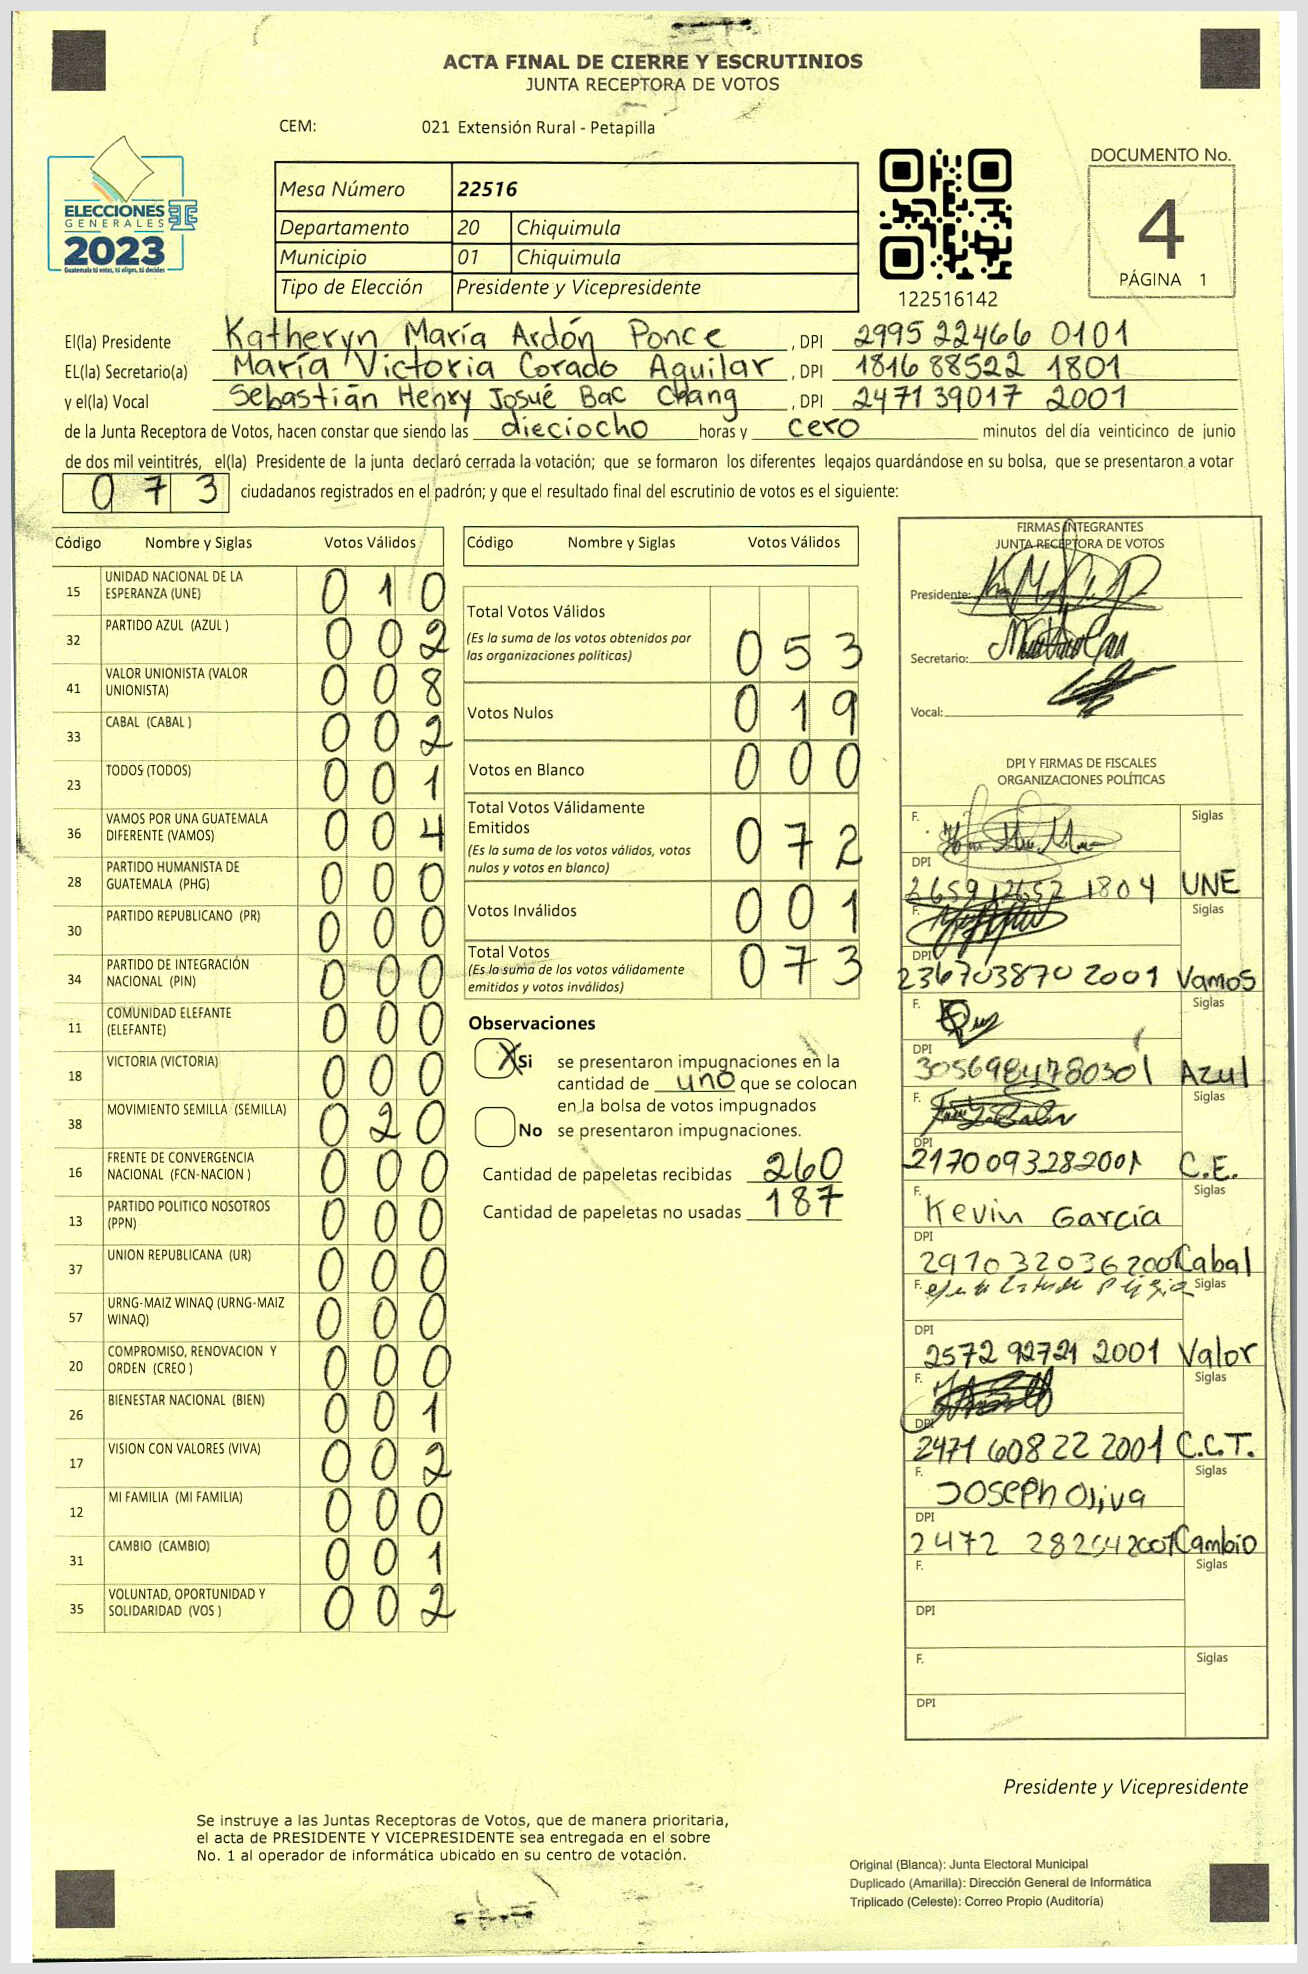 ACTA FINAL DE CIERRE Y ESCRUTINIOS
JUNTA RECEPTORA DE VOTOS
CEM: 021 Extensión Rural - Petapilla
ELECCIONES
GENERALES
2023
Guatemala tú votas, tú eliges, tú decides
Mesa Número 22516
Departamento 20 Chiquimula
Municipio 01 Chiquimula
Tipo de Elección Presidente y Vicepresidente
122516142
DOCUMENTO No.
4
PÁGINA 1
El(la) Presidente Katheryn María Ardón Ponce , DPI 2995 22466 0101
EL(la) Secretario(a) María Victoria Corado Aguilar , DPI 1816 88522 1801
y el(la) Vocal Sebastián Henry Josué Bac Chang , DPI 2471 39017 2001
de la Junta Receptora de Votos, hacen constar que siendo las dieciocho horas y cero minutos del día veinticinco de junio
de dos mil veintitrés, el(la) Presidente de la junta declaró cerrada la votación; que se formaron los diferentes legajos guardándose en su bolsa, que se presentaron a votar
073 ciudadanos registrados en el padrón; y que el resultado final del escrutinio de votos es el siguiente:
Código Nombre y Siglas Votos Válidos
15 UNIDAD NACIONAL DE LA ESPERANZA (UNE) 010
32 PARTIDO AZUL (AZUL ) 002
41 VALOR UNIONISTA (VALOR UNIONISTA) 008
33 CABAL (CABAL ) 002
23 TODOS (TODOS) 001
36 VAMOS POR UNA GUATEMALA DIFERENTE (VAMOS) 004
28 PARTIDO HUMANISTA DE GUATEMALA (PHG) 000
30 PARTIDO REPUBLICANO (PR) 000
34 PARTIDO DE INTEGRACIÓN NACIONAL (PIN) 000
11 COMUNIDAD ELEFANTE (ELEFANTE) 000
18 VICTORIA (VICTORIA) 000
38 MOVIMIENTO SEMILLA (SEMILLA) 020
16 FRENTE DE CONVERGENCIA NACIONAL (FCN-NACION ) 000
13 PARTIDO POLITICO NOSOTROS (PPN) 000
37 UNION REPUBLICANA (UR) 000
57 URNG-MAIZ WINAQ (URNG-MAIZ WINAQ) 000
20 COMPROMISO, RENOVACION Y ORDEN (CREO ) 000
26 BIENESTAR NACIONAL (BIEN) 001
17 VISION CON VALORES (VIVA) 002
12 MI FAMILIA (MI FAMILIA) 000
31 CAMBIO (CAMBIO) 001
35 VOLUNTAD, OPORTUNIDAD Y SOLIDARIDAD (VOS ) 002
Código Nombre y Siglas Votos Válidos
Total Votos Válidos
(Es la suma de los votos obtenidos por
las organizaciones políticas) 053
Votos Nulos 019
Votos en Blanco 000
Total Votos Válidamente
Emitidos
(Es la suma de los votos válidos, votos
nulos y votos en blanco) 072
Votos Inválidos 001
Total Votos
(Es la suma de los votos válidamente
emitidos y votos inválidos) 073
Observaciones
X Si se presentaron impugnaciones en la
cantidad de uno que se colocan
en la bolsa de votos impugnados
No se presentaron impugnaciones.
Cantidad de papeletas recibidas 260
Cantidad de papeletas no usadas 187
FIRMAS INTEGRANTES
JUNTA RECEPTORA DE VOTOS
Presidente:
Secretario:
Vocal:
DPI Y FIRMAS DE FISCALES
ORGANIZACIONES POLÍTICAS
F. Siglas
DPI
UNE
F. Siglas
DPI
236703870 2001 Vamos
F. Siglas
DPI
3056984780301 Azul
F. Siglas
DPI
2170093282001 C.E.
F. Kevin García Siglas
DPI
2970320362001 Cabal
F. Siglas
DPI
2572 92721 2001 Valor
F. Siglas
DPI
2471 60822 2001 C.C.T.
F. Joseph Oliva Siglas
DPI
2472 Cambio
F. Siglas
DPI
F. Siglas
DPI
Presidente y Vicepresidente
Se instruye a las Juntas Receptoras de Votos, que de manera prioritaria,
el acta de PRESIDENTE Y VICEPRESIDENTE sea entregada en el sobre
No. 1 al operador de informática ubicado en su centro de votación.
Original (Blanca): Junta Electoral Municipal
Duplicado (Amarilla): Dirección General de Informática
Triplicado (Celeste): Correo Propio (Auditoría)